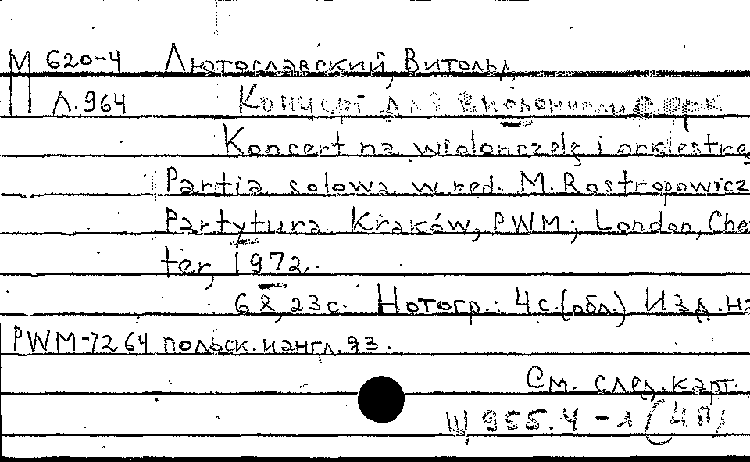 М 620-4 Лютославский, Витольд
Л.964 Концерт для виолончели с орк
Koncert na wiolonczelę i orkiestrę
Partia solowa w red. M. Rostropowicz
Partytura. Kraków, PWM; London, Che
ter, 1972.
6 & 23 с. Нотогр.: 4 с. (обл.) Изд. на
PWM-7264 польск. и англ. яз.
См. след. карт.
Щ 955.4 - 1 (4П)